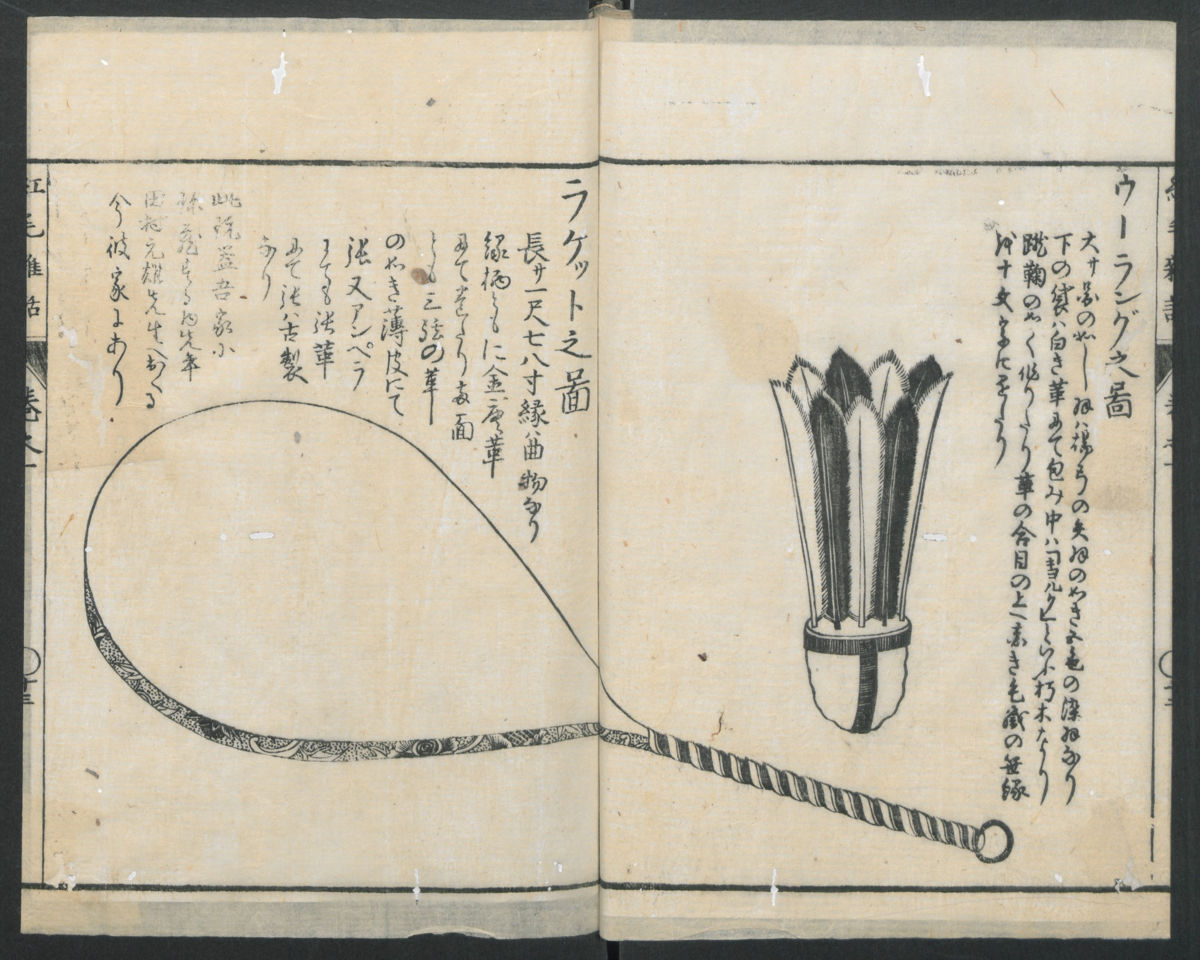 ウーラング之畧
大サ畧のぬし羽ハ楊弓の矢羽のぬき五色の染羽なり
下の袋ハ白き革にて包み中ハコヨルクといふ朽木なり
蹴鞠のぬく作りたり革の合目の上へ赤き毛織の無縁
を十文字にしたり
ラケット之圖
長サ一尺七八寸縁ハ曲物なり
縁柄ともに金唐革
にて巻たり両面
とも三弦の革
のぬき薄皮にて
張又アンペラ
にても張革
にて張ハ古製
なり
此玩器吾家小
珍蔵する為先年
田村元雄先生へおくる
今彼家にあり
紅毛雑話
巻之一